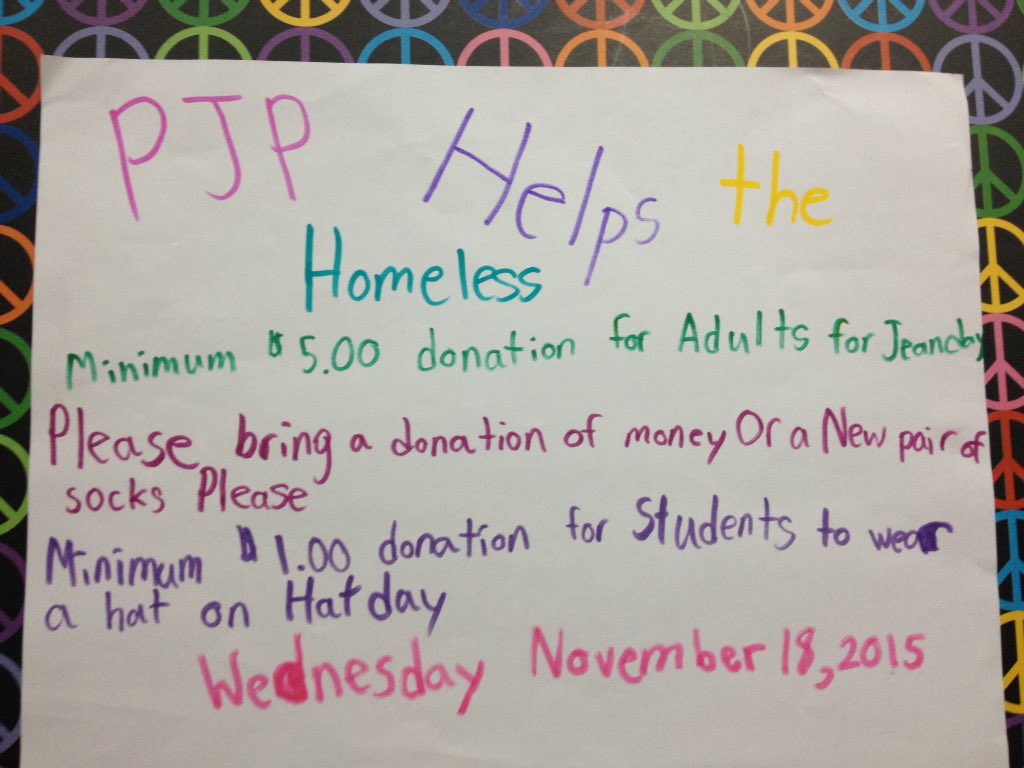 PJP Helps the
Homeless
Minimum $5.00 donation for Adults for Jeanday
Please bring a donation of money Or a New pair of
socks Please
Minimum $1.00 donation for Students to wear
a hat on Hat day
Wednesday November 18, 2015